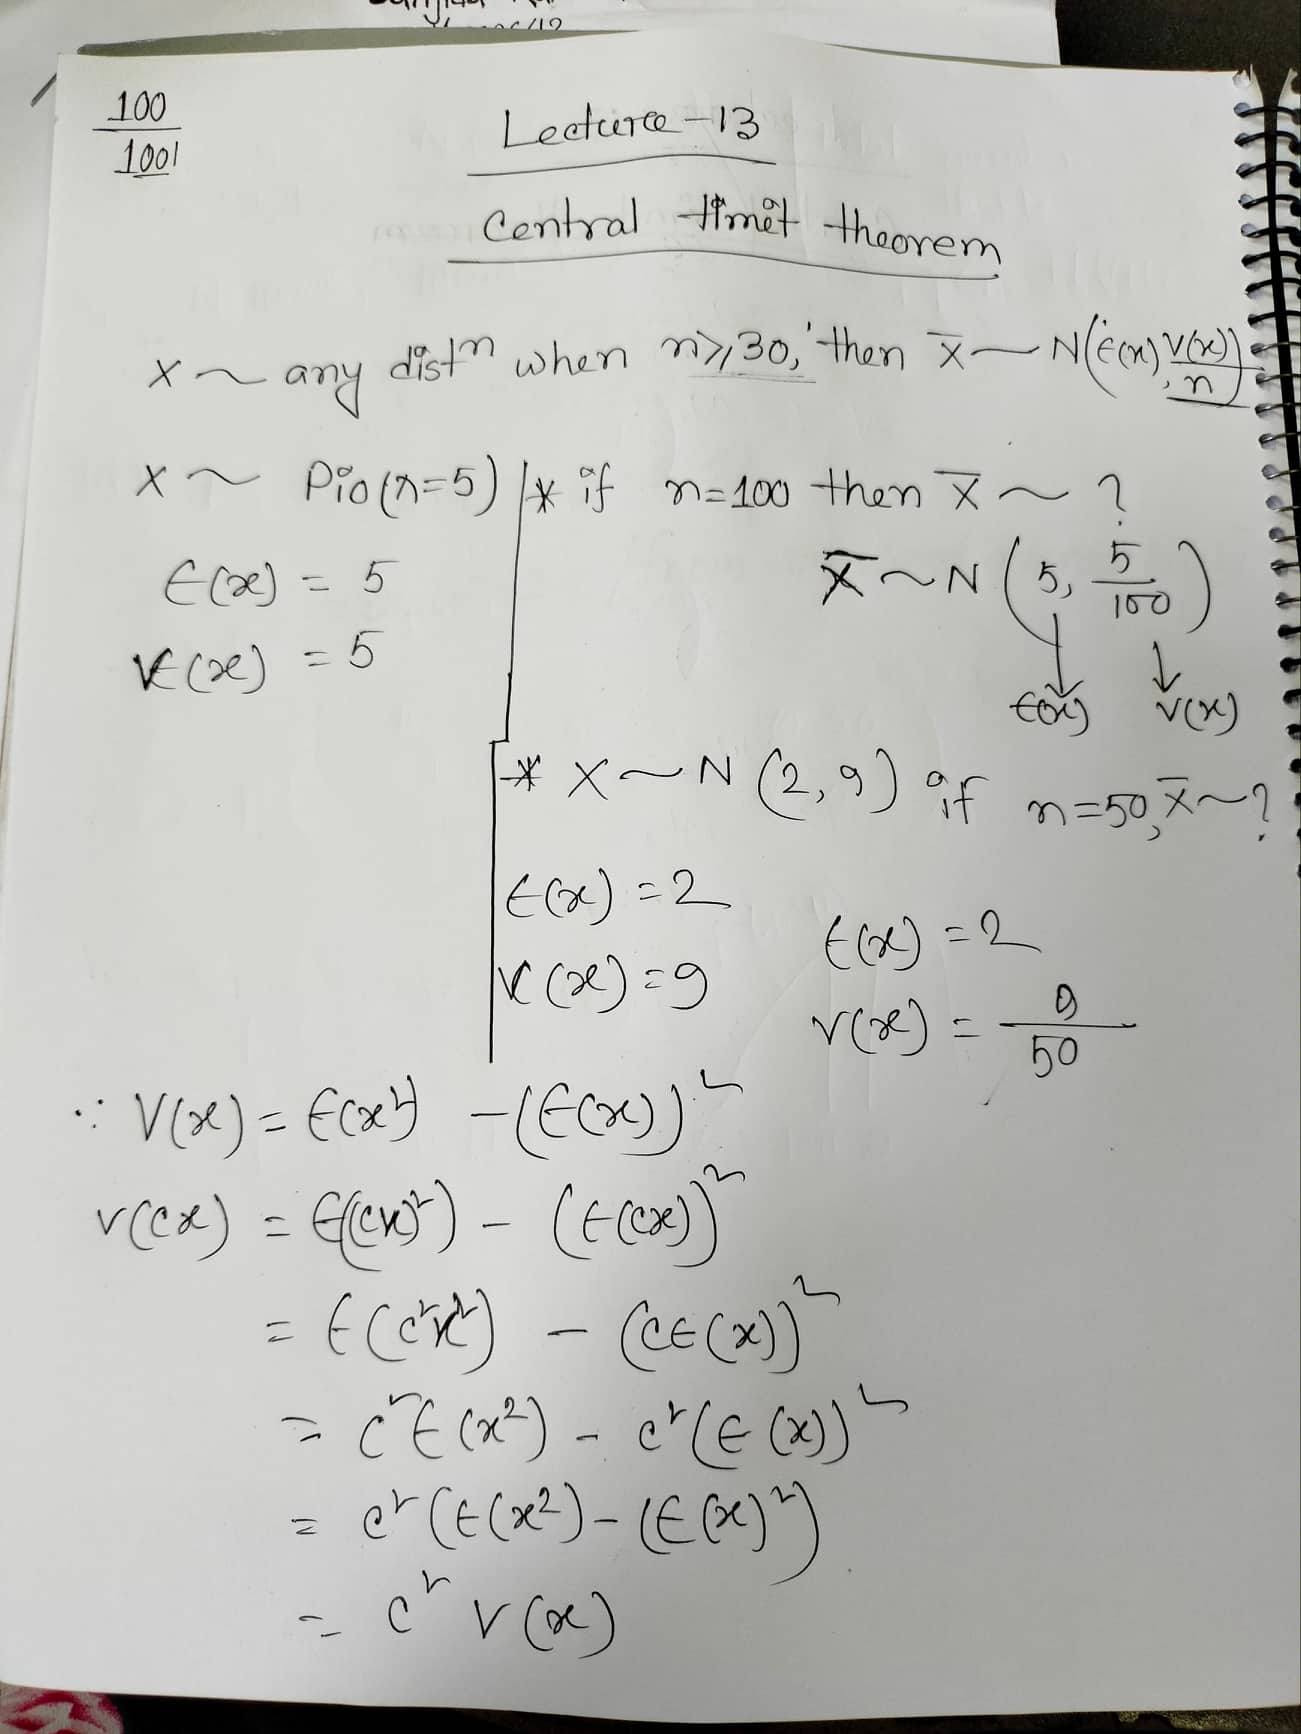 100
1001
Lecture-13
Central limit theorem
X ~ any distⁿ when n≥30, then X̄ ~ N(E(x), V(x)/n)
X ~ Pio(λ=5)
E(x) = 5
V(x) = 5
* if n=100 then X̄ ~ ?
X̄ ~ N(5, 5/100)
E(x) V(x)
* X ~ N(2, 9) if n=50, X̄ ~ ?
E(x) = 2
V(x) = 9
E(x) = 2
V(x) = 9/50
∵ V(x) = E(x²) - (E(x))²
V(cx) = E((cx)²) - (E(cx))²
= E(c²x²) - (cE(x))²
= c²E(x²) - c²(E(x))²
= c²(E(x²) - (E(x)²)
= c² V(x)